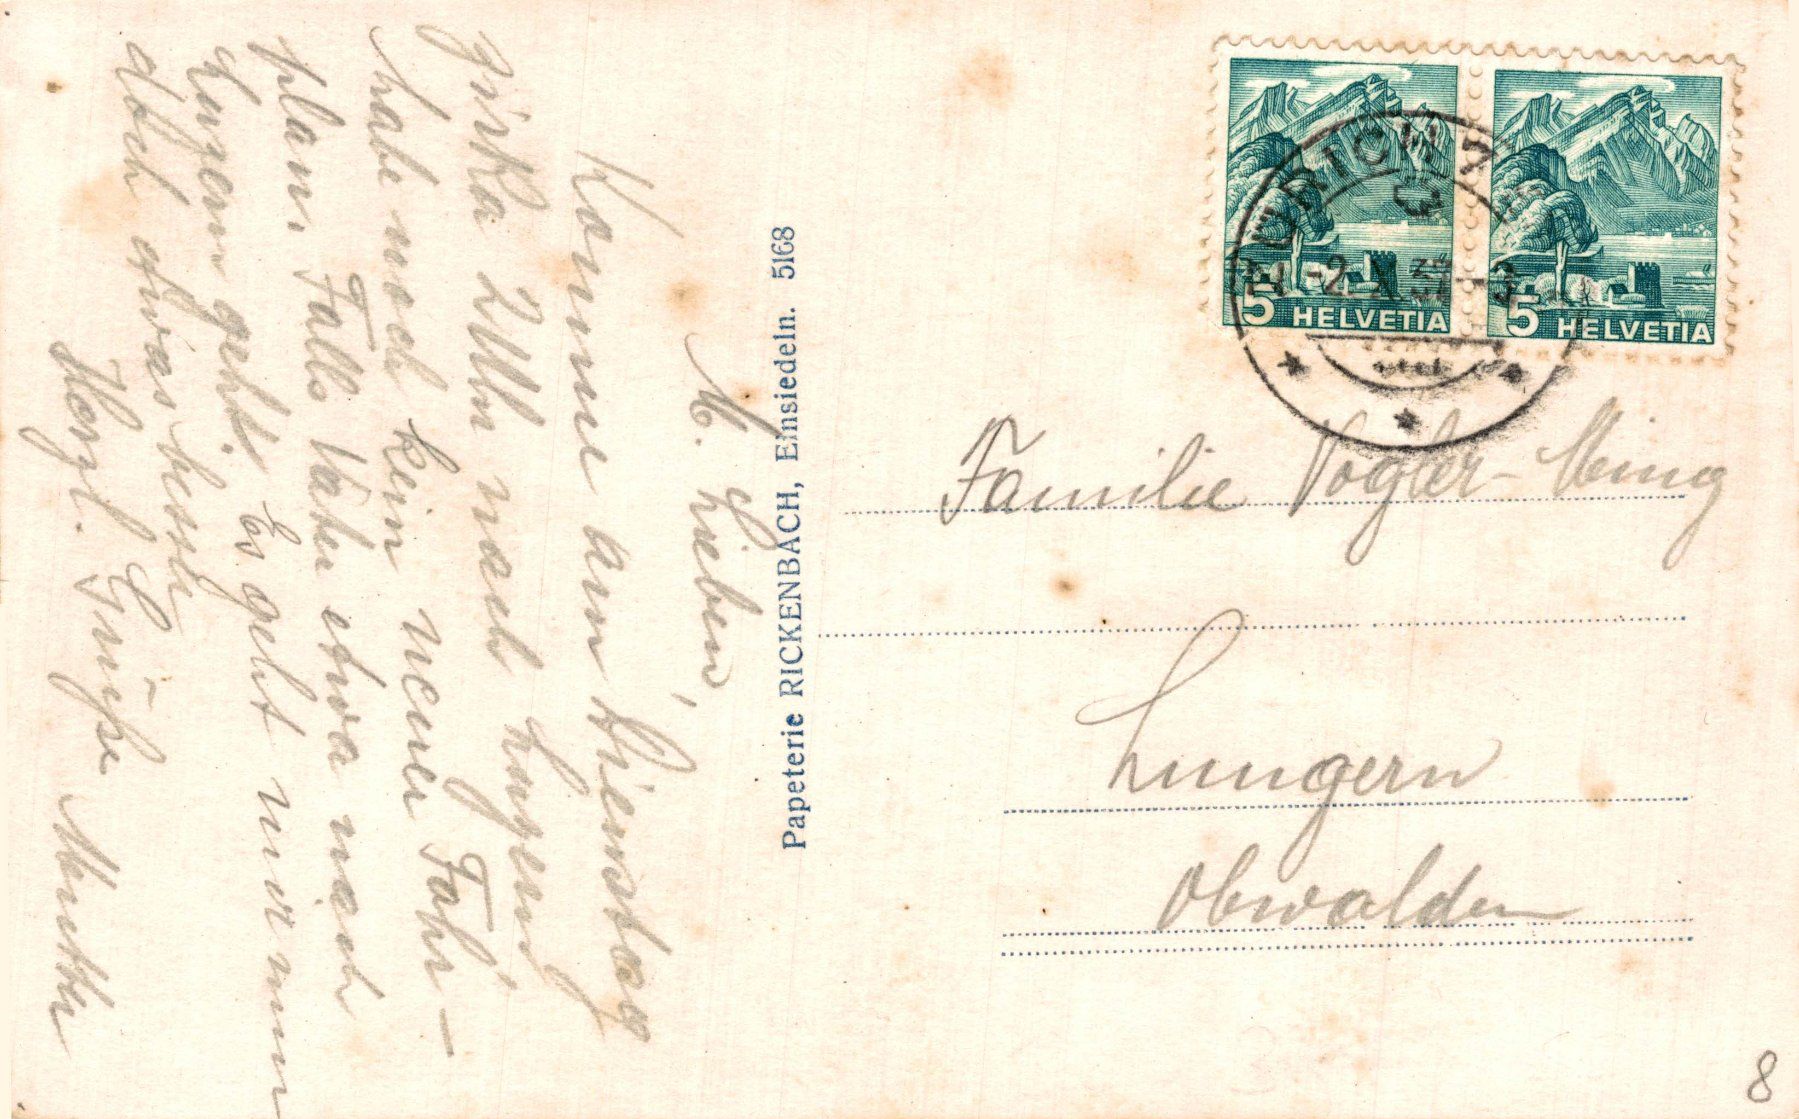 M. Lieben,
Komme am Dienstag
zirka 2 Uhr nach Lugern
habe noch kein neuer Fahr-
plan. Falls Vater etwa nach
Lugern geht. Es geht mir nun
doch etwas besser
Herzl. Grüsse Mutter
Papeterie RICKENBACH, Einsiedeln. 5168
5 HELVETIA
5 HELVETIA
-2. X. 37
Familie Vogler-Ming
Lungern
Obwalden
8